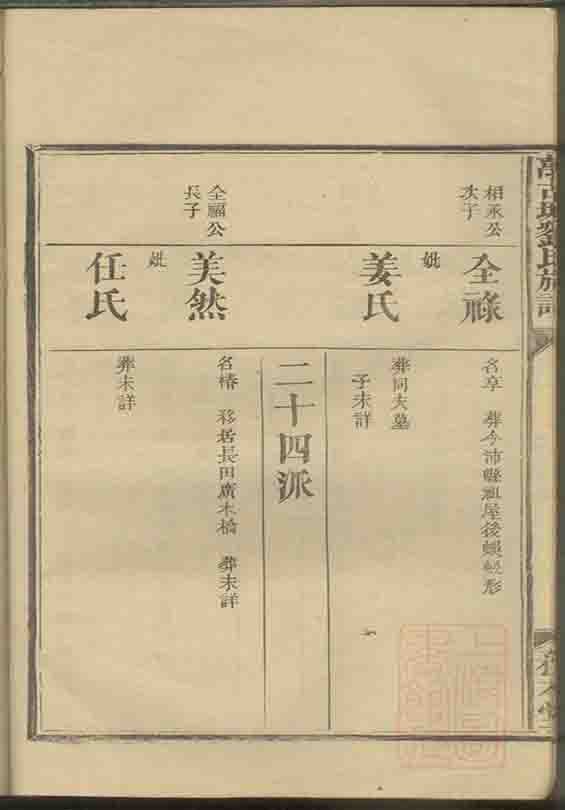 劉氏族
相丞公
次子
全祿
名享 葬今沛縣祖屋後蜈蚣形
妣
姜氏
葬同夫墓
子未詳
二十四派
全福公
長子
美然
名椿 移居長田廣木橋 葬未詳
妣
任氏
葬未詳